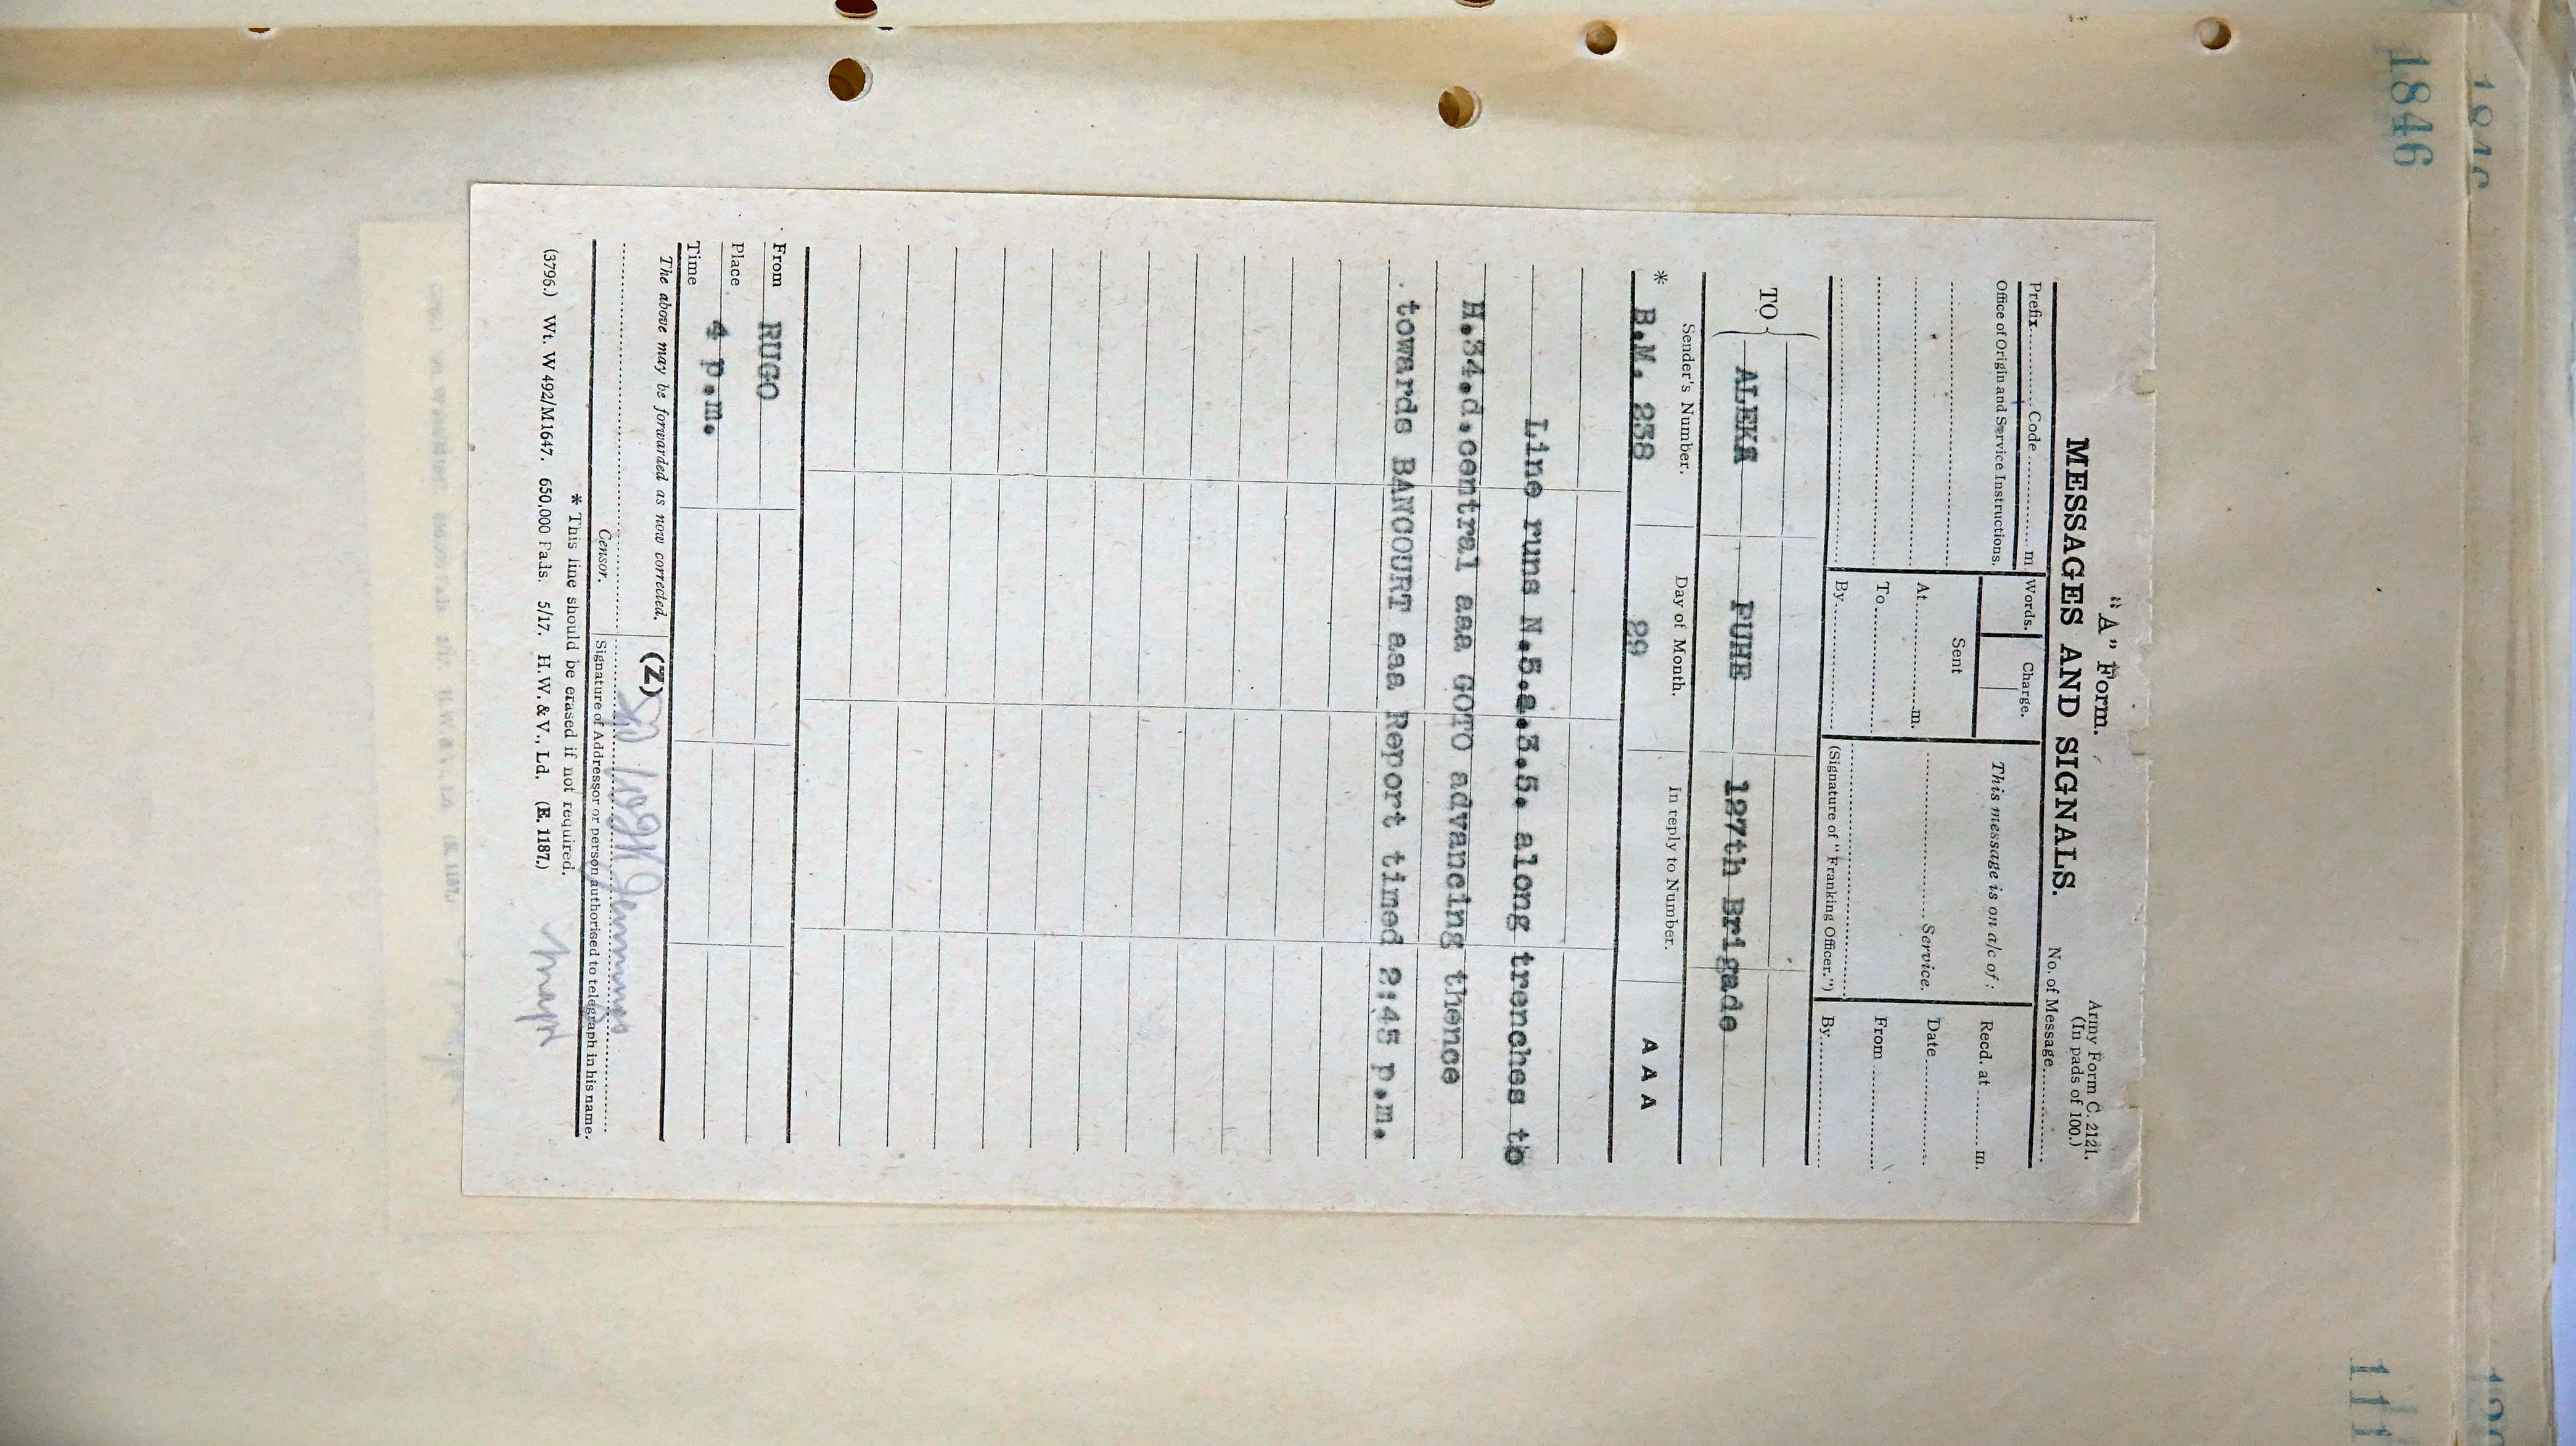 1846
"A" Form.
MESSAGES AND SIGNALS.
Army Form C. 2121.
(In pads of 100.)
No. of Message
Prefix Code m
Words.
Charge.
This message is on a/c of:
Recd. at m.
Office of Origin and Service Instructions.
Sent
At m.
Service.
Date
To
From
By
(Signature of "Franking Officer.")
By
TO
ALEKA PUHE 127th Brigade
Sender's Number.
Day of Month.
In reply to Number.
* B.M. 238 29 AAA
Line runs N.5.a.3.5. along trenches to
H.34.d.central aaa GOTO advancing thence
towards BANCOURT aaa Report timed 2:45 p.m.
From RUGO
Place
Time 4 p.m.
The above may be forwarded as now corrected.
(Z)
Censor.
Signature of Addressor or person authorised to telegraph in his name.
* This line should be erased if not required.
(3796.) Wt. W 492/M1647. 650,000 Pads. 5/17. H.W. & V., Ld. (E. 1187.)